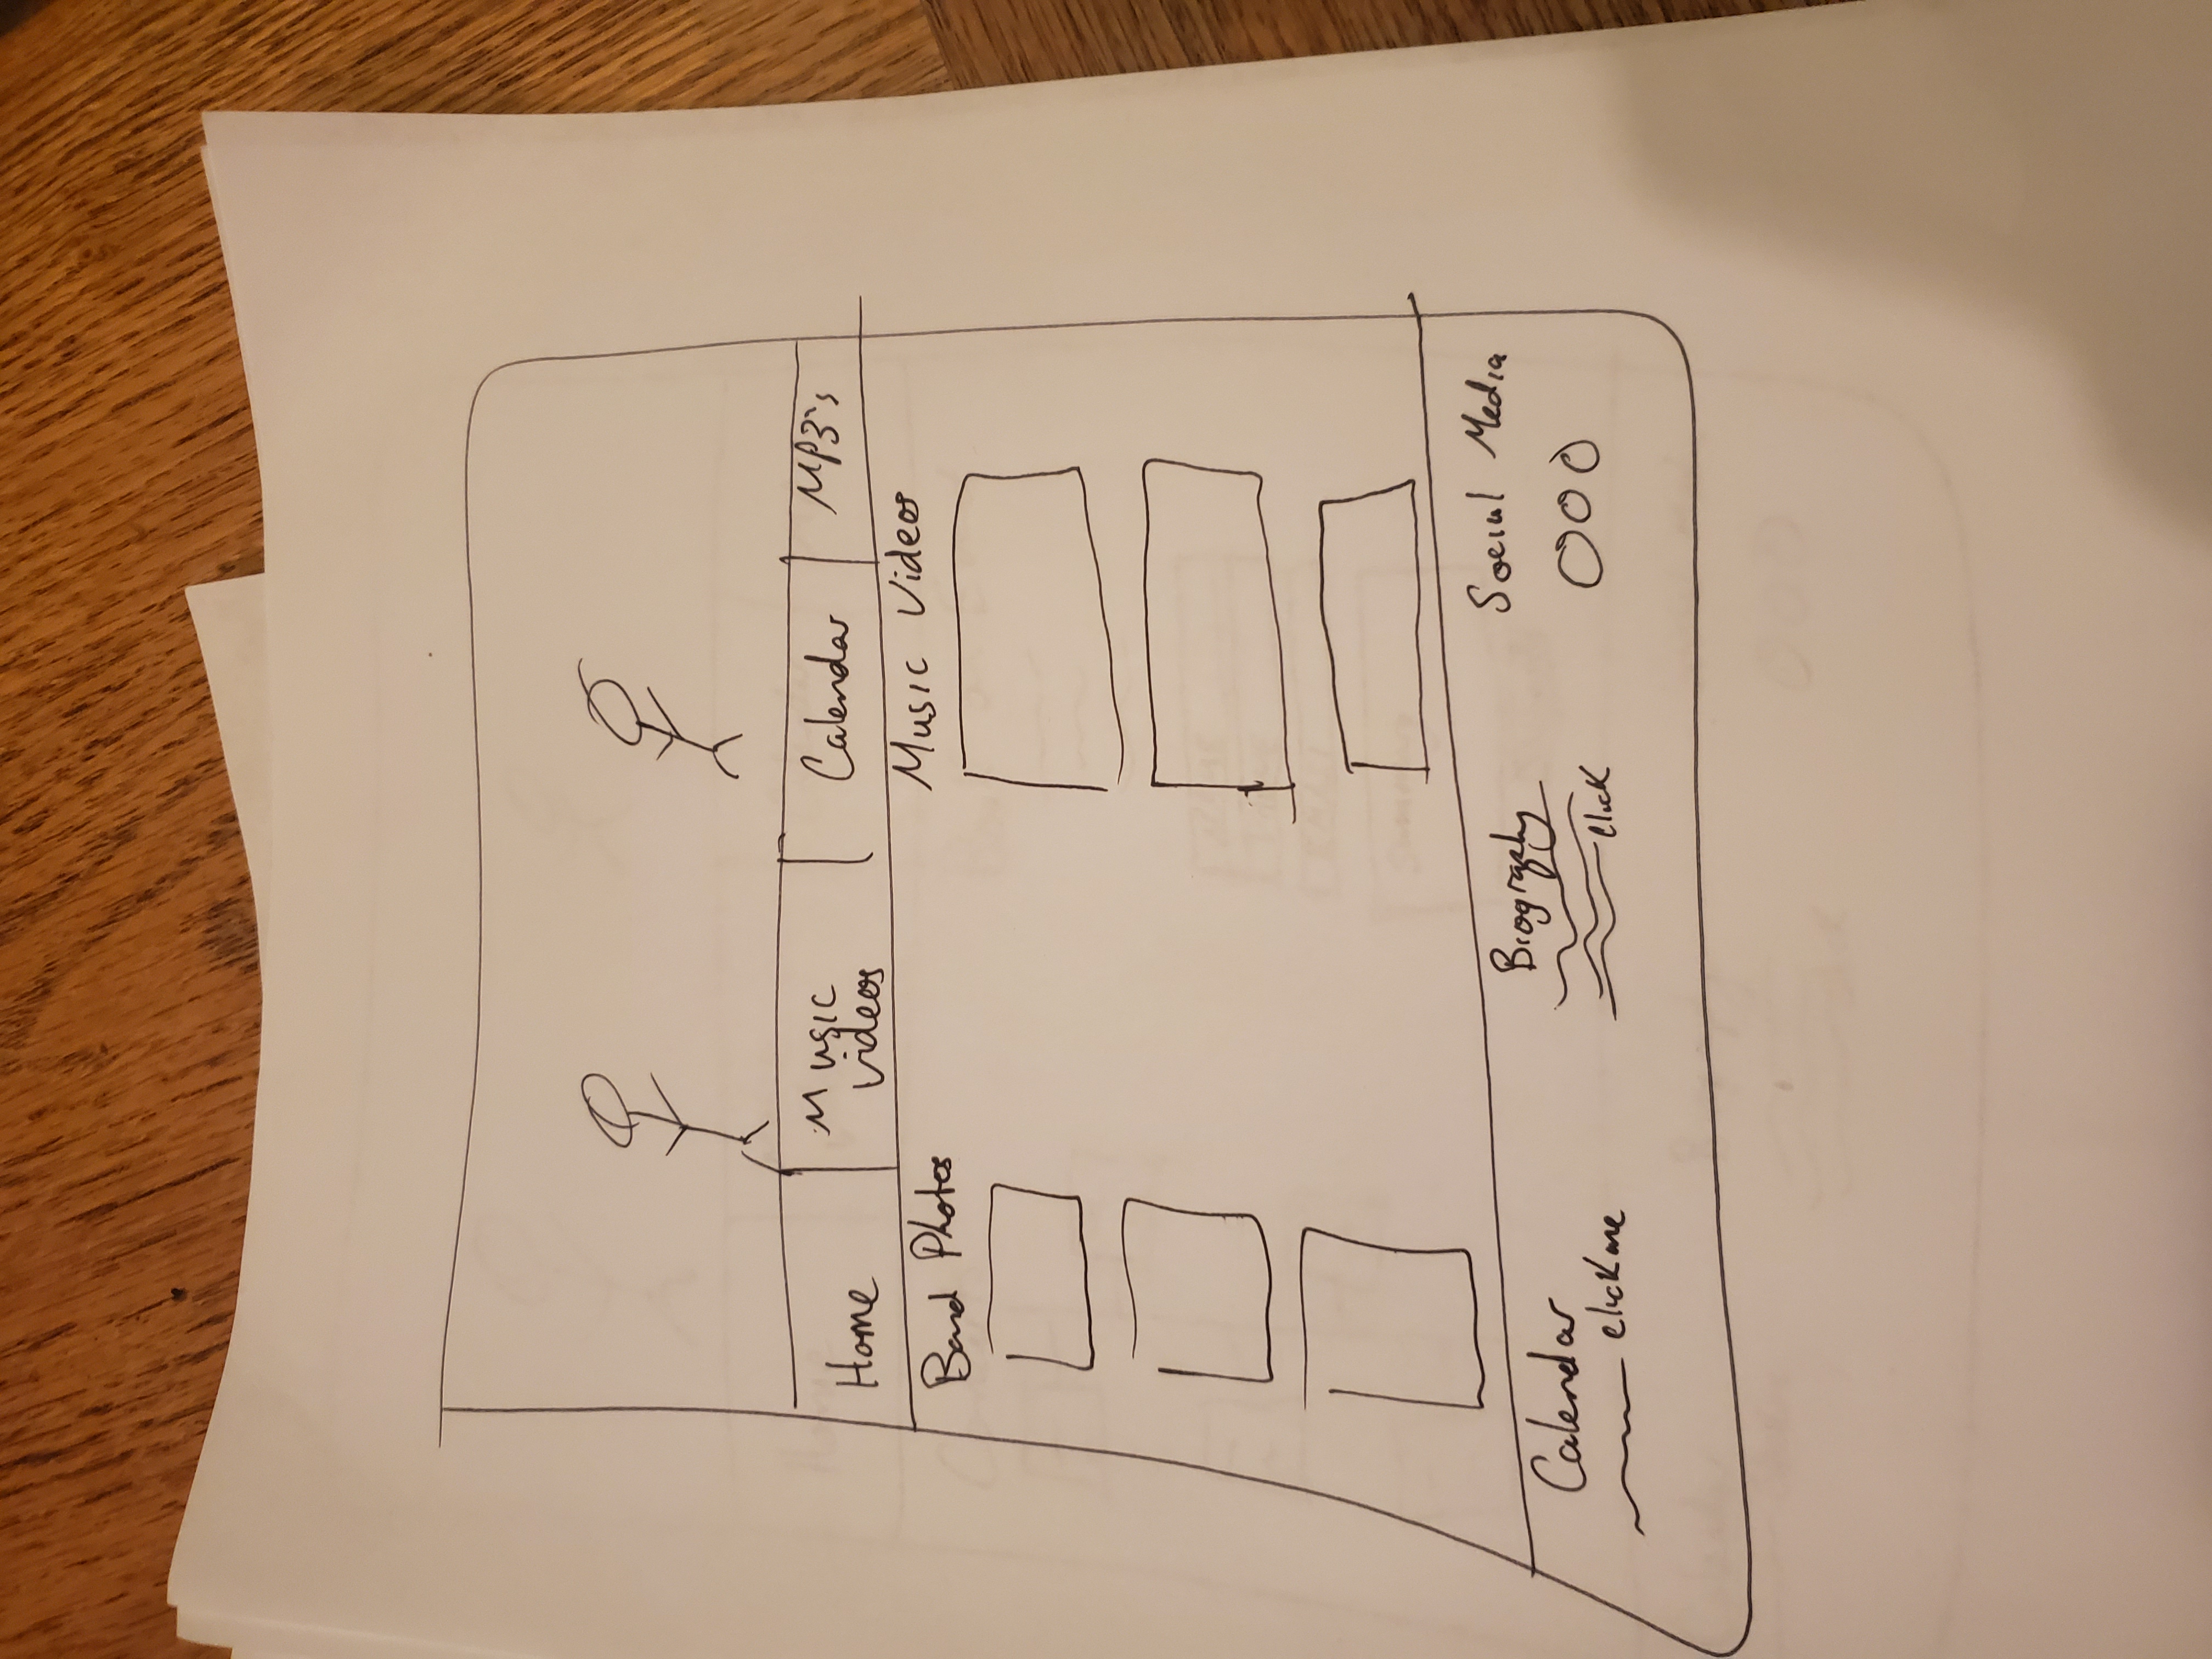 Home
Music
Videos
Calendar
MP3's
Band Photos
Music Videos
Calendar
click me
Biography
click
Social Media